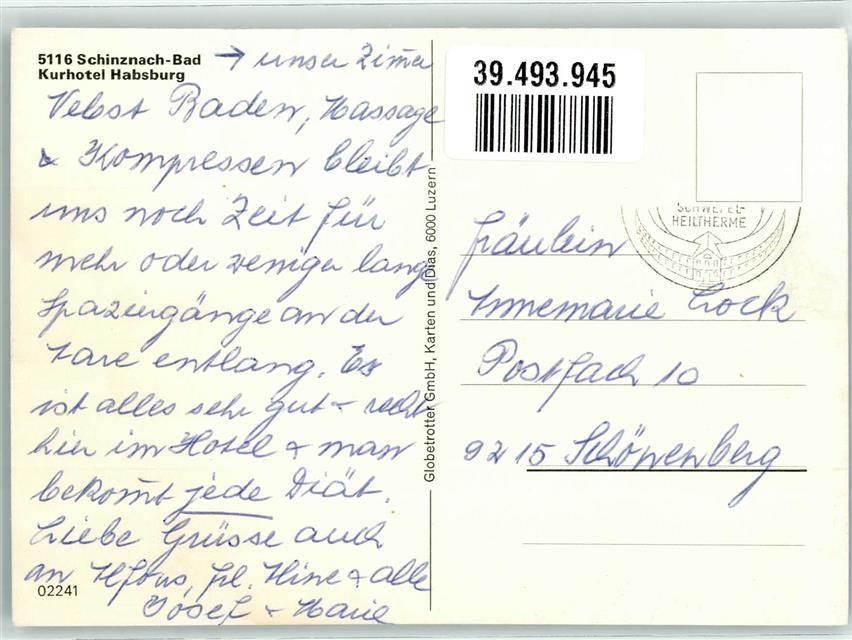 5116 Schinznach-Bad → unser Zimmer
Kurhotel Habsburg
Nebst Baden, Massage
& Kompressen bleibt
uns noch Zeit für
mehr oder weniger lange
Spaziergänge an der
Aare entlang. Es
ist alles sehr gut & recht
hier im Hotel & man
bekommt jede Diät.
Liebe Grüsse auch
an Alfons, Frl. Aline & alle
Josef & Marie
02241
Globetrotter GmbH, Karten und Dias, 6000 Luzern
39.493.945
SCHWEFEL-
HEILTHERME
Fräulein
Annemarie Lock
Postfach 10
9215 Schönenberg